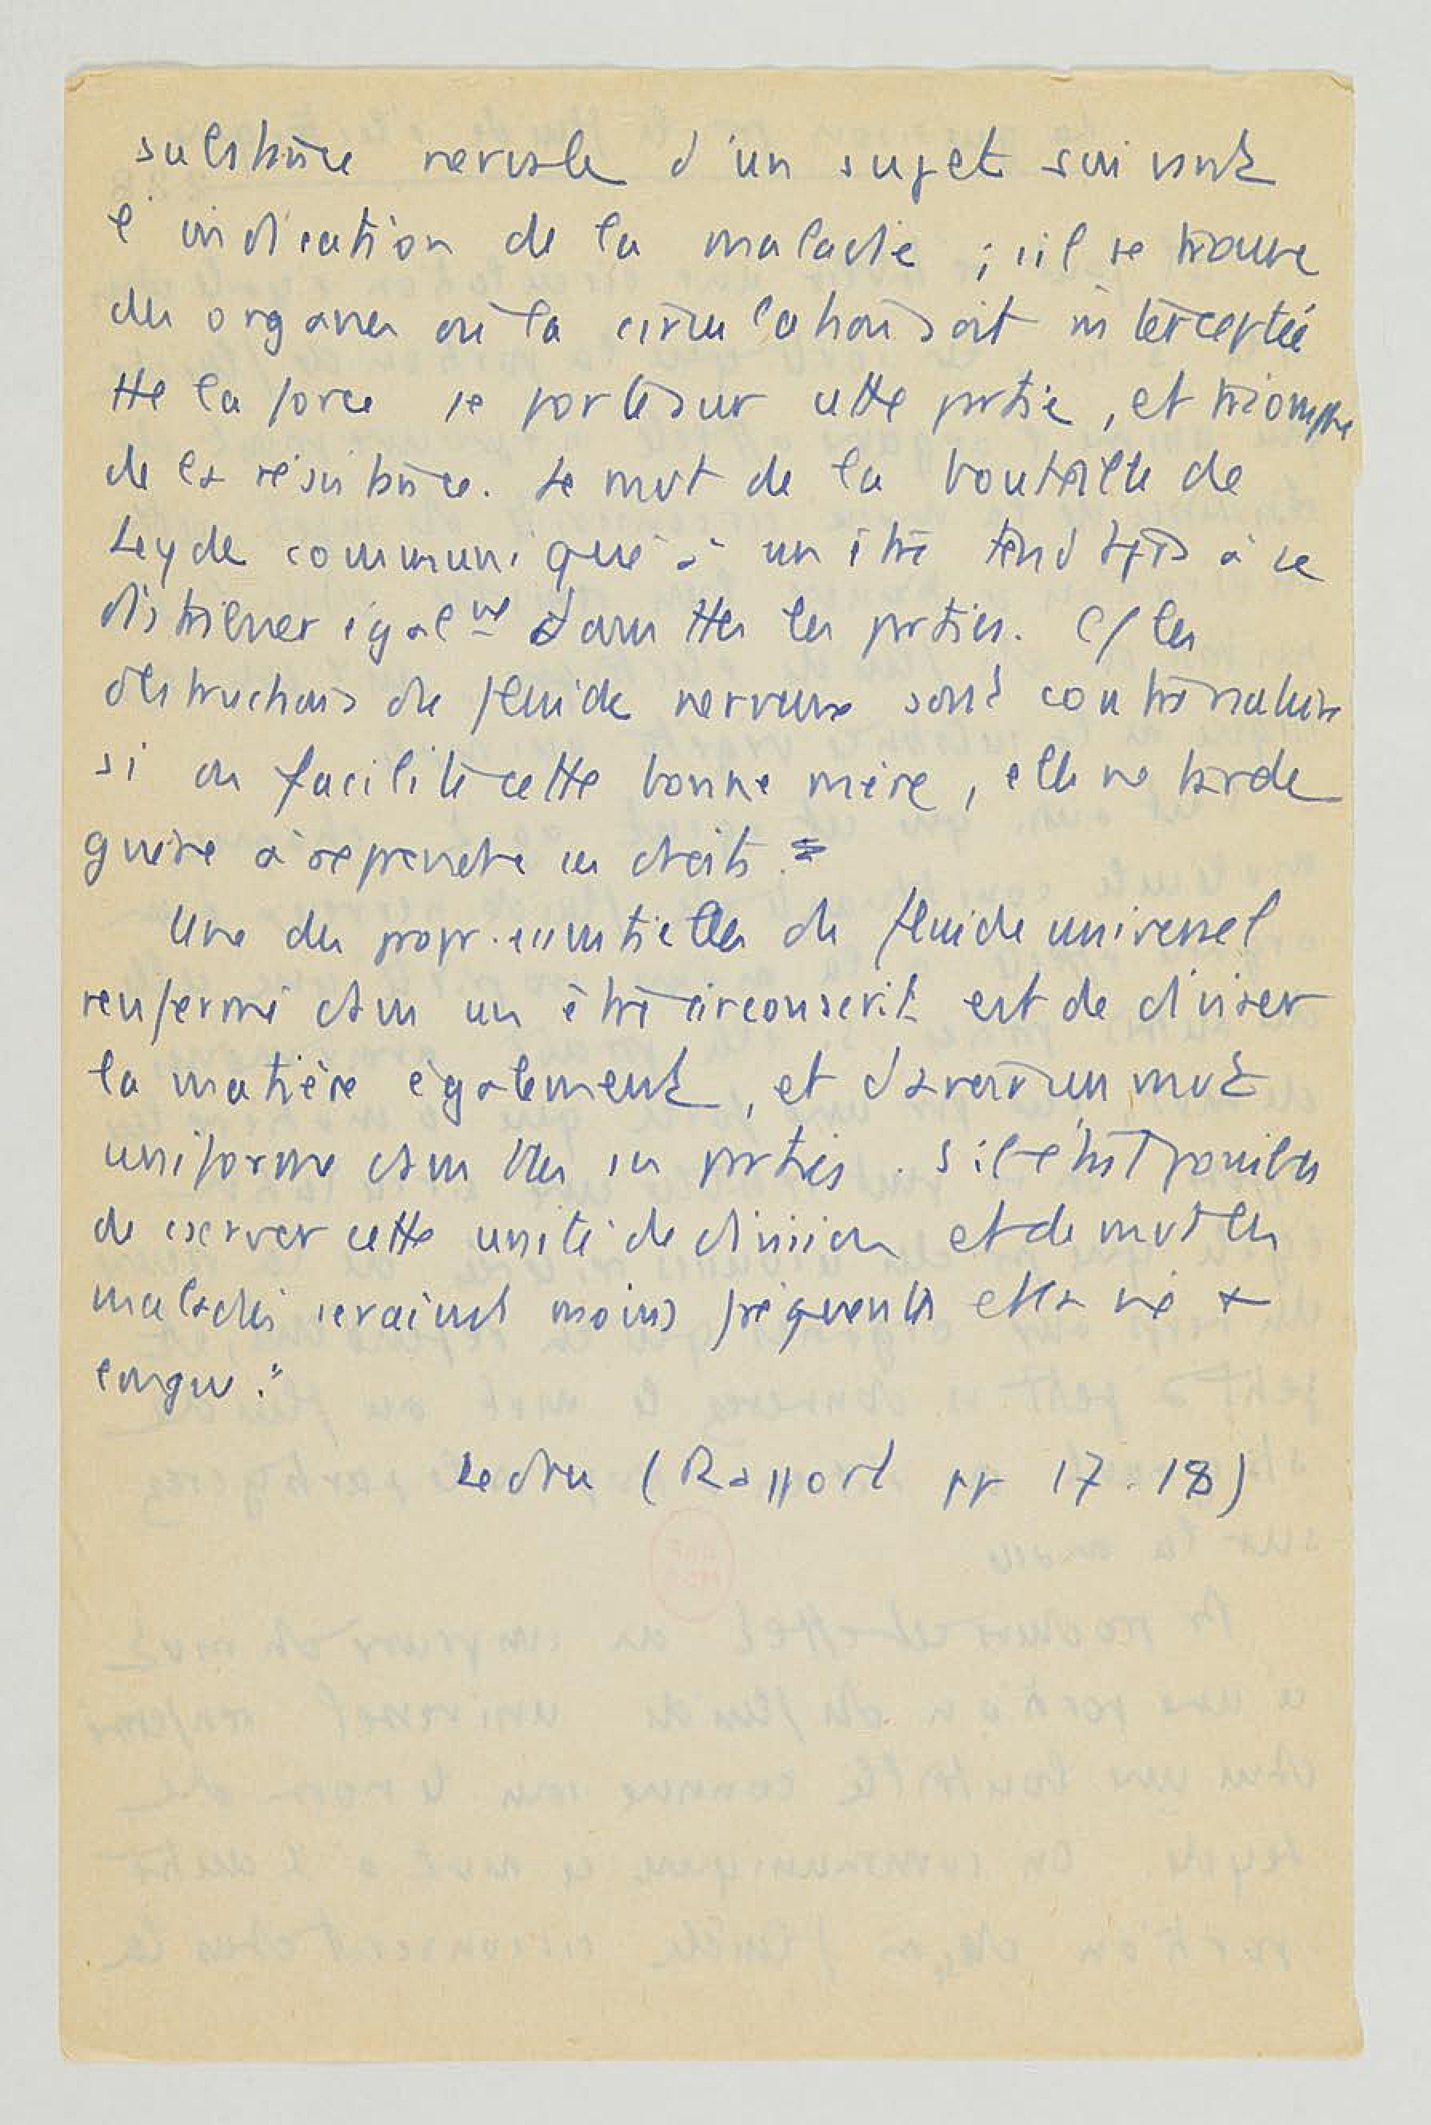 substance nerveuse d'un sujet suivant
l'indication de la maladie ; s'il se trouve
des organes où la circulation soit interceptée
tte la force se porte sur cette partie, et triomphe
de la résistance. Le mvt de la bouteille de
Leyde communiqué à un être tend tjrs à se
distribuer égalmt dans ttes les parties. C/ les
obstructions du fluide nerveux sont contre nature
si on facilite cette bonne mère, elle ne tarde
guère à reprendre ses droits.
Une des propr. essentielles du fluide universel
renfermé dans un être circonscrit est de diviser
la matière également, et d'avoir un mvt
uniforme dans ttes ses parties. S'il était possible
de cserver cette unité de division et de mvt les
maladies seraient moins fréquentes et la vie +
longue."
Ledru (Rapport pp 17.18)